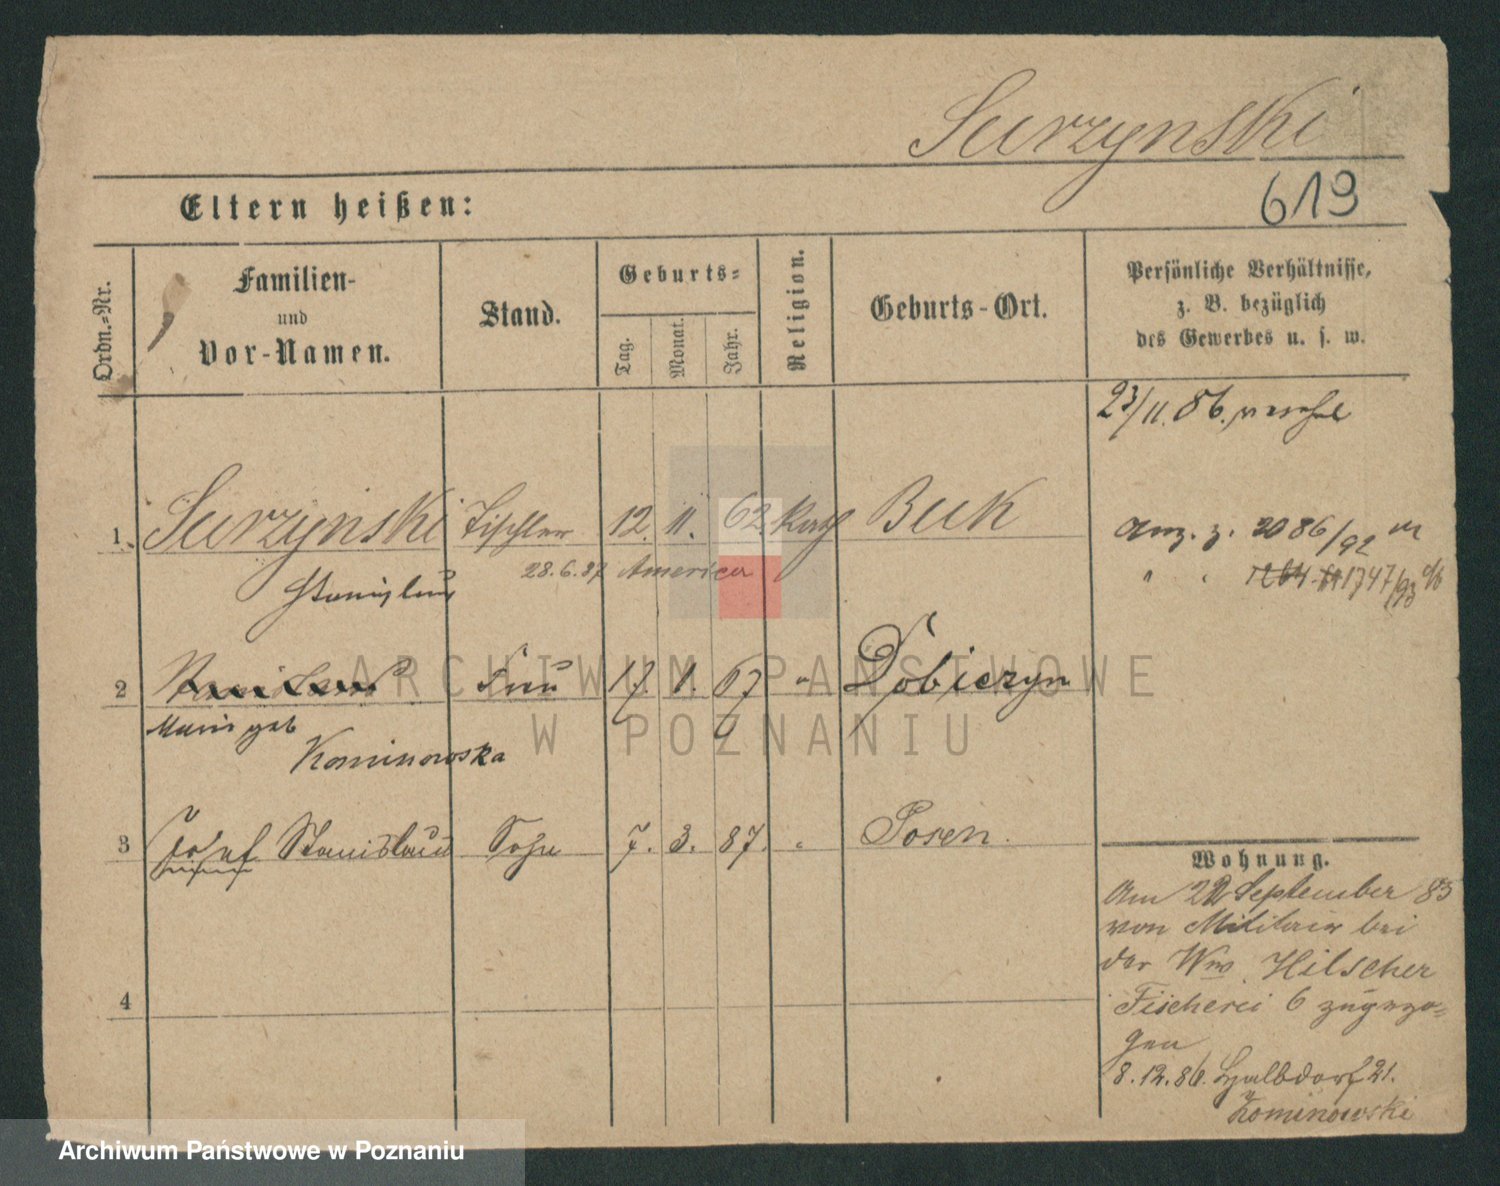 Surzynski
Eltern heißen:
619
Ordn.-Nr.
Familien-
und
Vor-Namen.
Stand.
Geburts-
Tag.
Monat.
Jahr.
Religion.
Geburts-Ort.
Persönliche Verhältnisse,
z. B. bezüglich
des Gewerbes u. s. w.
23/11. 86.
1. Surzynski Tischler 12. 11. 62. Kath Buk
Stanislaus
28.6.87 America
Anz. z. 2086/92
" " 1747/93
2 Frau 17. 1. 67 " Dobiezyn
Maria geb
Kominowska
3 Josef Stanislaus Sohn 7. 3. 87. " Posen.
4
Wohnung.
Am 22 September 85
von Militair bei
der Ww. Hilscher
Fischerei 6 zugezo-
gen
8.12.86. Halbdorf 21.
Kominowski
ARCHIWUM PAŃSTWOWE
W POZNANIU
Archiwum Państwowe w Poznaniu